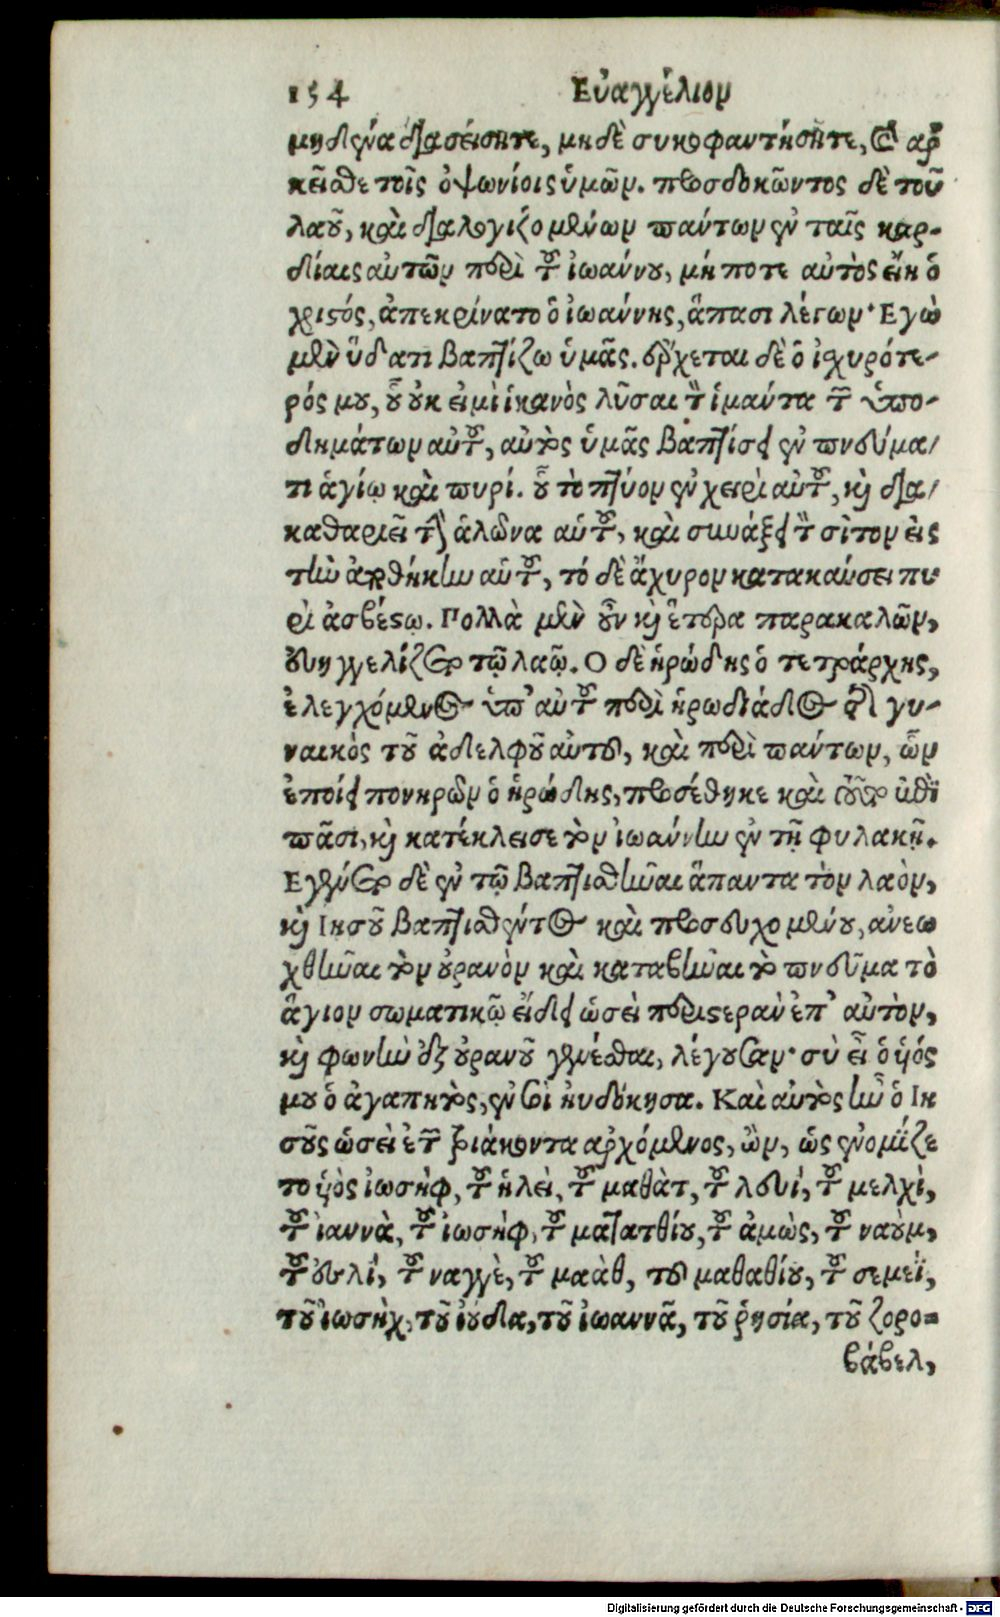 154 Εὐαγγέλιον
μηδένα διασείσητε, μηδὲ συκοφαντήσητε, καὶ ἀρ
κεῖσθε τοῖς ὀψωνίοις ὑμῶν. προσδοκῶντος δὲ τοῦ
λαοῦ, καὶ διαλογιζομένων πάντων ἐν ταῖς καρ-
δίαις αὐτῶν περὶ τοῦ ἰωάννου, μή ποτε αὐτὸς εἴη ὁ
χριστός, ἀπεκρίνατο ὁ ἰωάννης, ἅπασι λέγων· Εγὼ
μὲν ὕδατι βαπτίζω ὑμᾶς. ἔρχεται δὲ ὁ ἰσχυρότε-
ρός μου, οὗ οὐκ εἰμὶ ἱκανὸς λῦσαι τὸν ἱμάντα τῶν ὑπο-
δημάτων αὐτοῦ, αὐτὸς ὑμᾶς βαπτίσει ἐν πνεύμα/
τι ἁγίῳ καὶ πυρί. οὗ τὸ πτύον ἐν χειρὶ αὐτοῦ, καὶ δια/
καθαριεῖ τὴν ἅλωνα αὑτοῦ, καὶ συνάξει τὸν σῖτον εἰς
τὴν ἀποθήκην αὑτοῦ, τό δὲ ἄχυρον κατακαύσει πυ
ρὶ ἀσβέστῳ. Πολλὰ μὲν οὖν καὶ ἕτερα παρακαλῶν,
εὐηγγελίζετο τῷ λαῷ. Ο δὲ ἡρώδης ὁ τετράρχης,
ἐλεγχόμενος ὑπ' αὐτοῦ περὶ ἡρωδιάδος τῆς γυ-
ναικὸς τοῦ ἀδελφοῦ αὐτοῦ, καὶ περὶ πάντων, ὧν
ἐποίει πονηρῶν ὁ ἡρώδης, προσέθηκε καὶ τοῦτο ἐπὶ
πᾶσι, καὶ κατέκλεισε τὸν ἰωάννην ἐν τῇ φυλακῇ.
Εγένετο δὲ ἐν τῷ βαπτισθῆναι ἅπαντα τὸν λαὸν,
καὶ Ιησοῦ βαπτισθέντος καὶ προσευχομένου, ἀνεω
χθῆναι τὸν οὐρανὸν καὶ καταβῆναι τὸ πνεῦμα τὸ
ἅγιον σωματικῷ εἴδει ὡσεὶ περιστερὰν ἐπ' αὐτὸν,
καὶ φωνὴν ἐξ οὐρανοῦ γενέσθαι, λέγουσαν· σὺ εἶ ὁ υἱός
μου ὁ ἀγαπητὸς, ἐν σοὶ ηὐδόκησα. Καὶ αὐτὸς ἦν ὁ Ιη
σοῦς ὡσεὶ ἐτῶν τριάκοντα ἀρχόμενος, ὢν, ὡς ἐνομίζε
το υἱὸς ἰωσὴφ, τοῦ ἡλεὶ, τοῦ μαθὰτ, τοῦ λευί, τοῦ μελχὶ,
τοῦ ἰαννὰ, τοῦ ἰωσὴφ, τοῦ ματτατθίου, τοῦ ἀμὼς, τοῦ ναοὺμ,
τοῦ ἐσλί, τοῦ ναγγὲ, τοῦ μαὰθ, τοῦ μαθαθίου, τοῦ σεμεΐ,
τοῦ ἰωσὴχ, τοῦ ἰούδα, τοῦ ἰωαννᾶ, τοῦ ῥησία, τοῦ ζορο-
βάβελ,
Digitalisierung gefördert durch die Deutsche Forschungsgemeinschaft - DFG